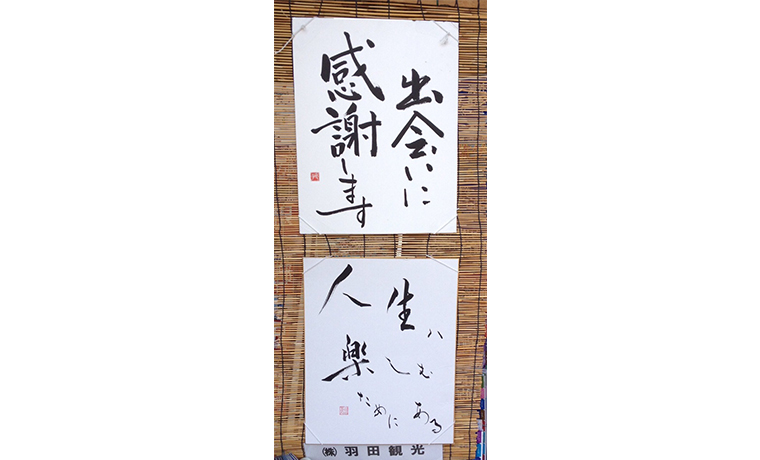 出会いに
感謝します
人生ハ
楽しむ
ためにある
㈱羽田観光